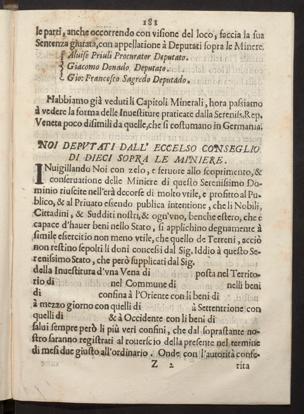 181
le parti, anche occorrendo con visione del loco, faccia la sua
Sentenza giurata, con appellatione à Deputati sopra le Minere.
Aluise Priuli Procurator Deputato.
Giacomo Donado Deputato.
Gio: Francesco Sagredo Deputado.
Habbiamo già veduti li Capitoli Minerali, hora passiamo
à vedere la forma delle Inuestiture praticate dalla Serenis. Rep.
Veneta poco disimili da quelle, che si costumano in Germania.
NOI DEPVTATI DALL' ECCELSO CONSEGLIO
DI DIECI SOPRA LE MINIERE.
INuigilando Noi con zelo, e feruore allo scoprimento, &
conseruatione delle Miniere di questo Serenissimo Do-
minio riuscite nell'erà decorse di molto vtile, e profitto al Pu-
blico, & al Priuato essendo publica intentione, che li Nobili,
Cittadini, & Sudditi nostri, & ogn'vno, benche estero, che è
capace d'hauer beni nello Stato, si applichino degnamente à
simile esercitio non meno vtile, che quello de Terreni, acciò
non restino sepolti li doni concessi dal Sig. Iddio à questo Se-
renissimo Stato, che però supplicati dal Sig.
della Inuestitura d'vna Vena di posta nel Territo-
rio di nel Commune di nelli beni
di confina à l'Oriente con li beni di
à mezzo giorno con quelli di à Settentrione con
quelli di & à Occidente con li beni di
salui sempre però li più veri confini, che dal soprastante no-
stro saranno registrati al rouerscio della presente nel termine
di mesi due giusto all'ordinario. Onde con l'autorità confe-
Z 2 rita